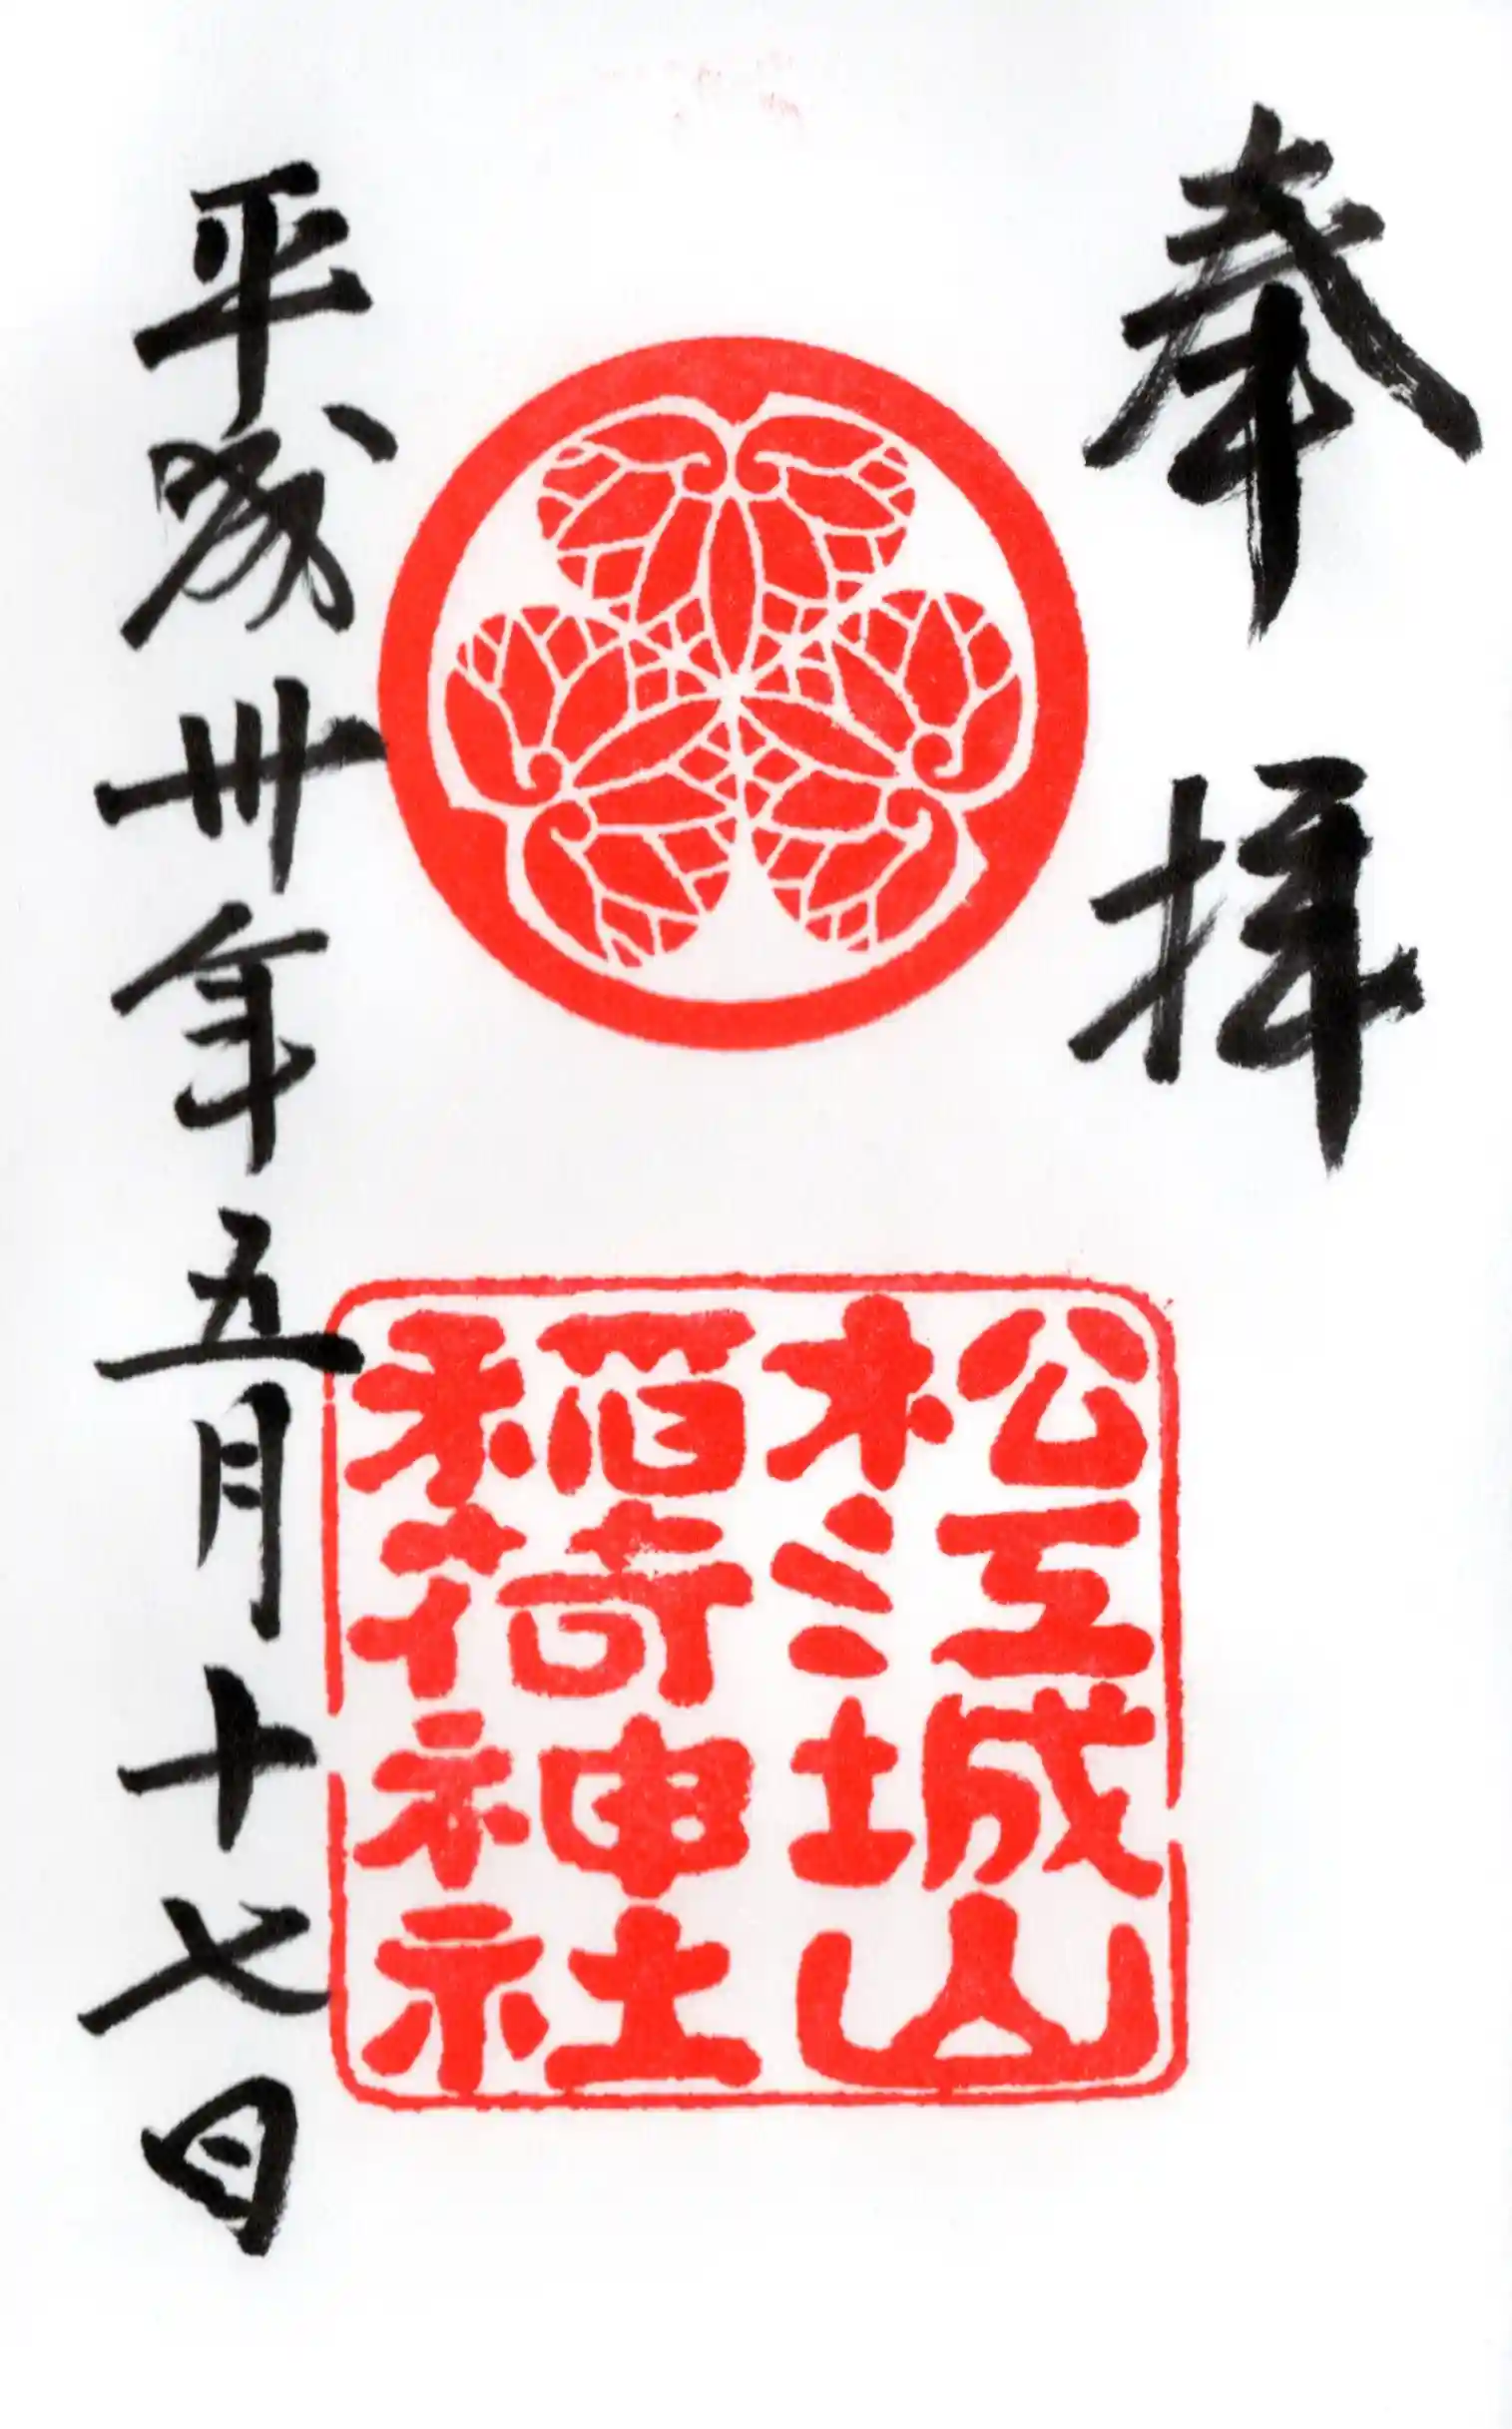 奉拝
松江城山
稲荷神社
平成卅年五月十七日